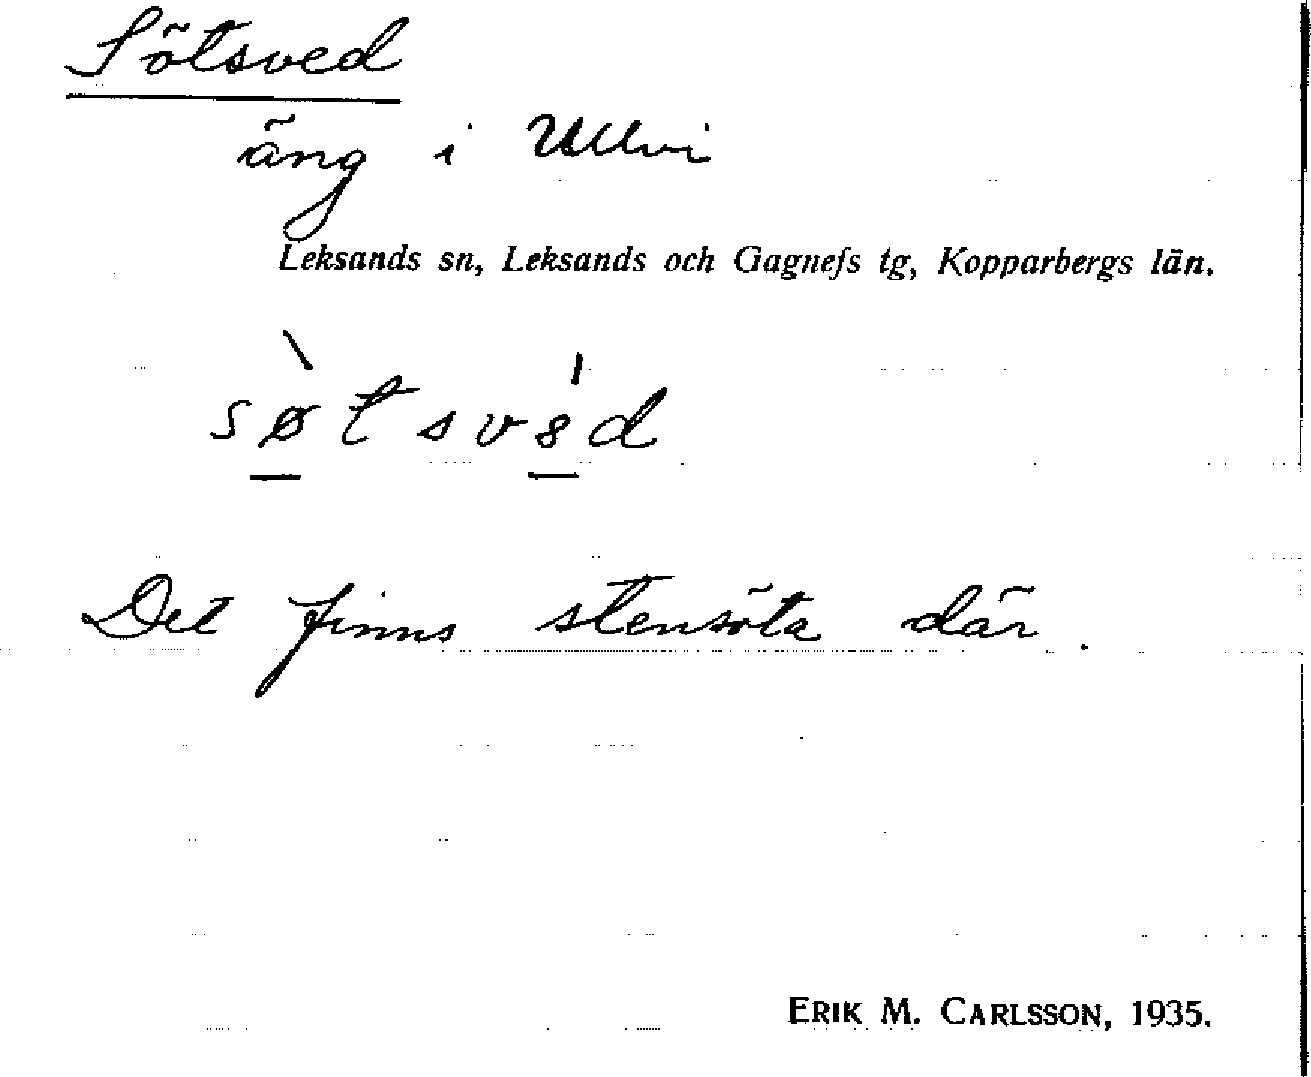 Sötsved
äng i Ullvi
Leksands sn, Leksands och Gagnefs tg, Kopparbergs län.
søtsved
Det finns stensöta där.
ERIK M. CARLSSON, 1935.